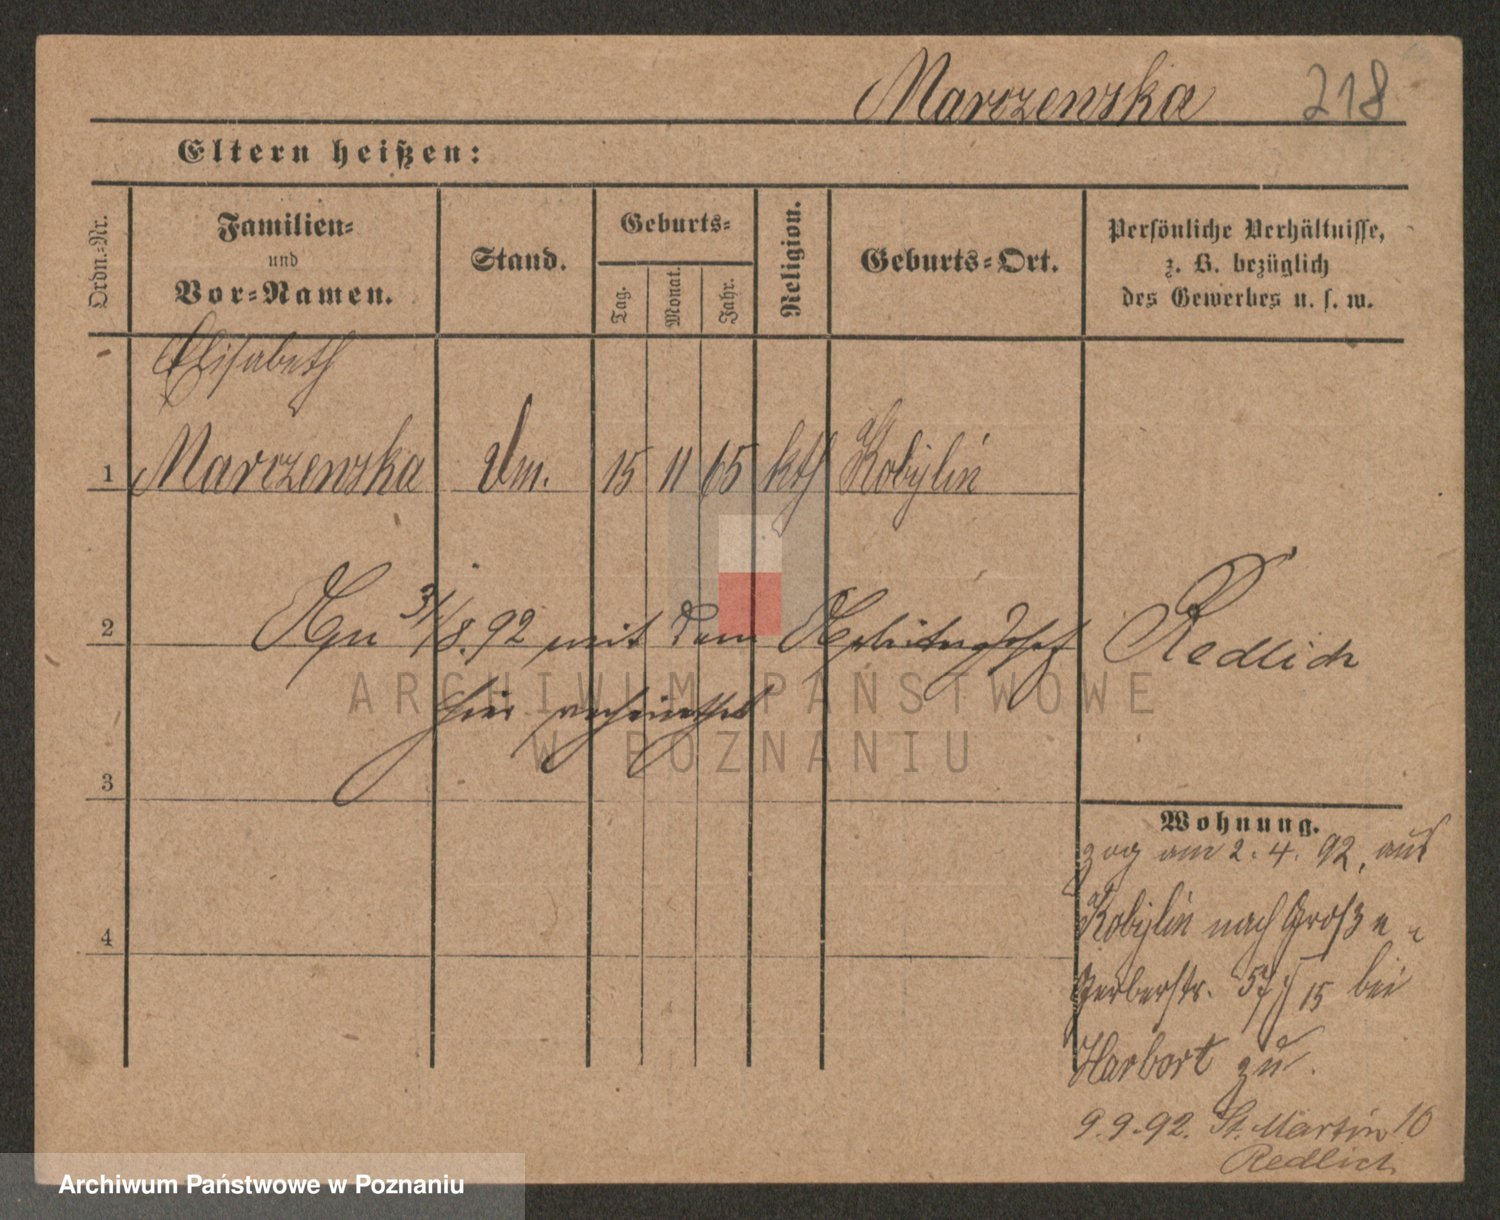 Marczewska 218
Eltern heißen:
Ordn.-Nr.
Familien-
und
Vor-Namen.
Stand.
Geburts-
Tag.
Monat.
Jahr.
Religion.
Geburts-Ort.
Persönliche Verhältnisse,
z. B. bezüglich
des Gewerbes u. s. w.
Elisabeth
1 Marczewska 15 11 65 kth Kobylin
2 31/8.92 mit dem Redlich
hier verheirathet
3
4
Wohnung.
zog am 2.4.92, aus
Kobylin nach Große
Gerberstr. 15 bei
Harbort zu.
9.9.92. St. Martin 10
Redlich
ARCHIWUM PAŃSTWOWE
W POZNANIU
Archiwum Państwowe w Poznaniu